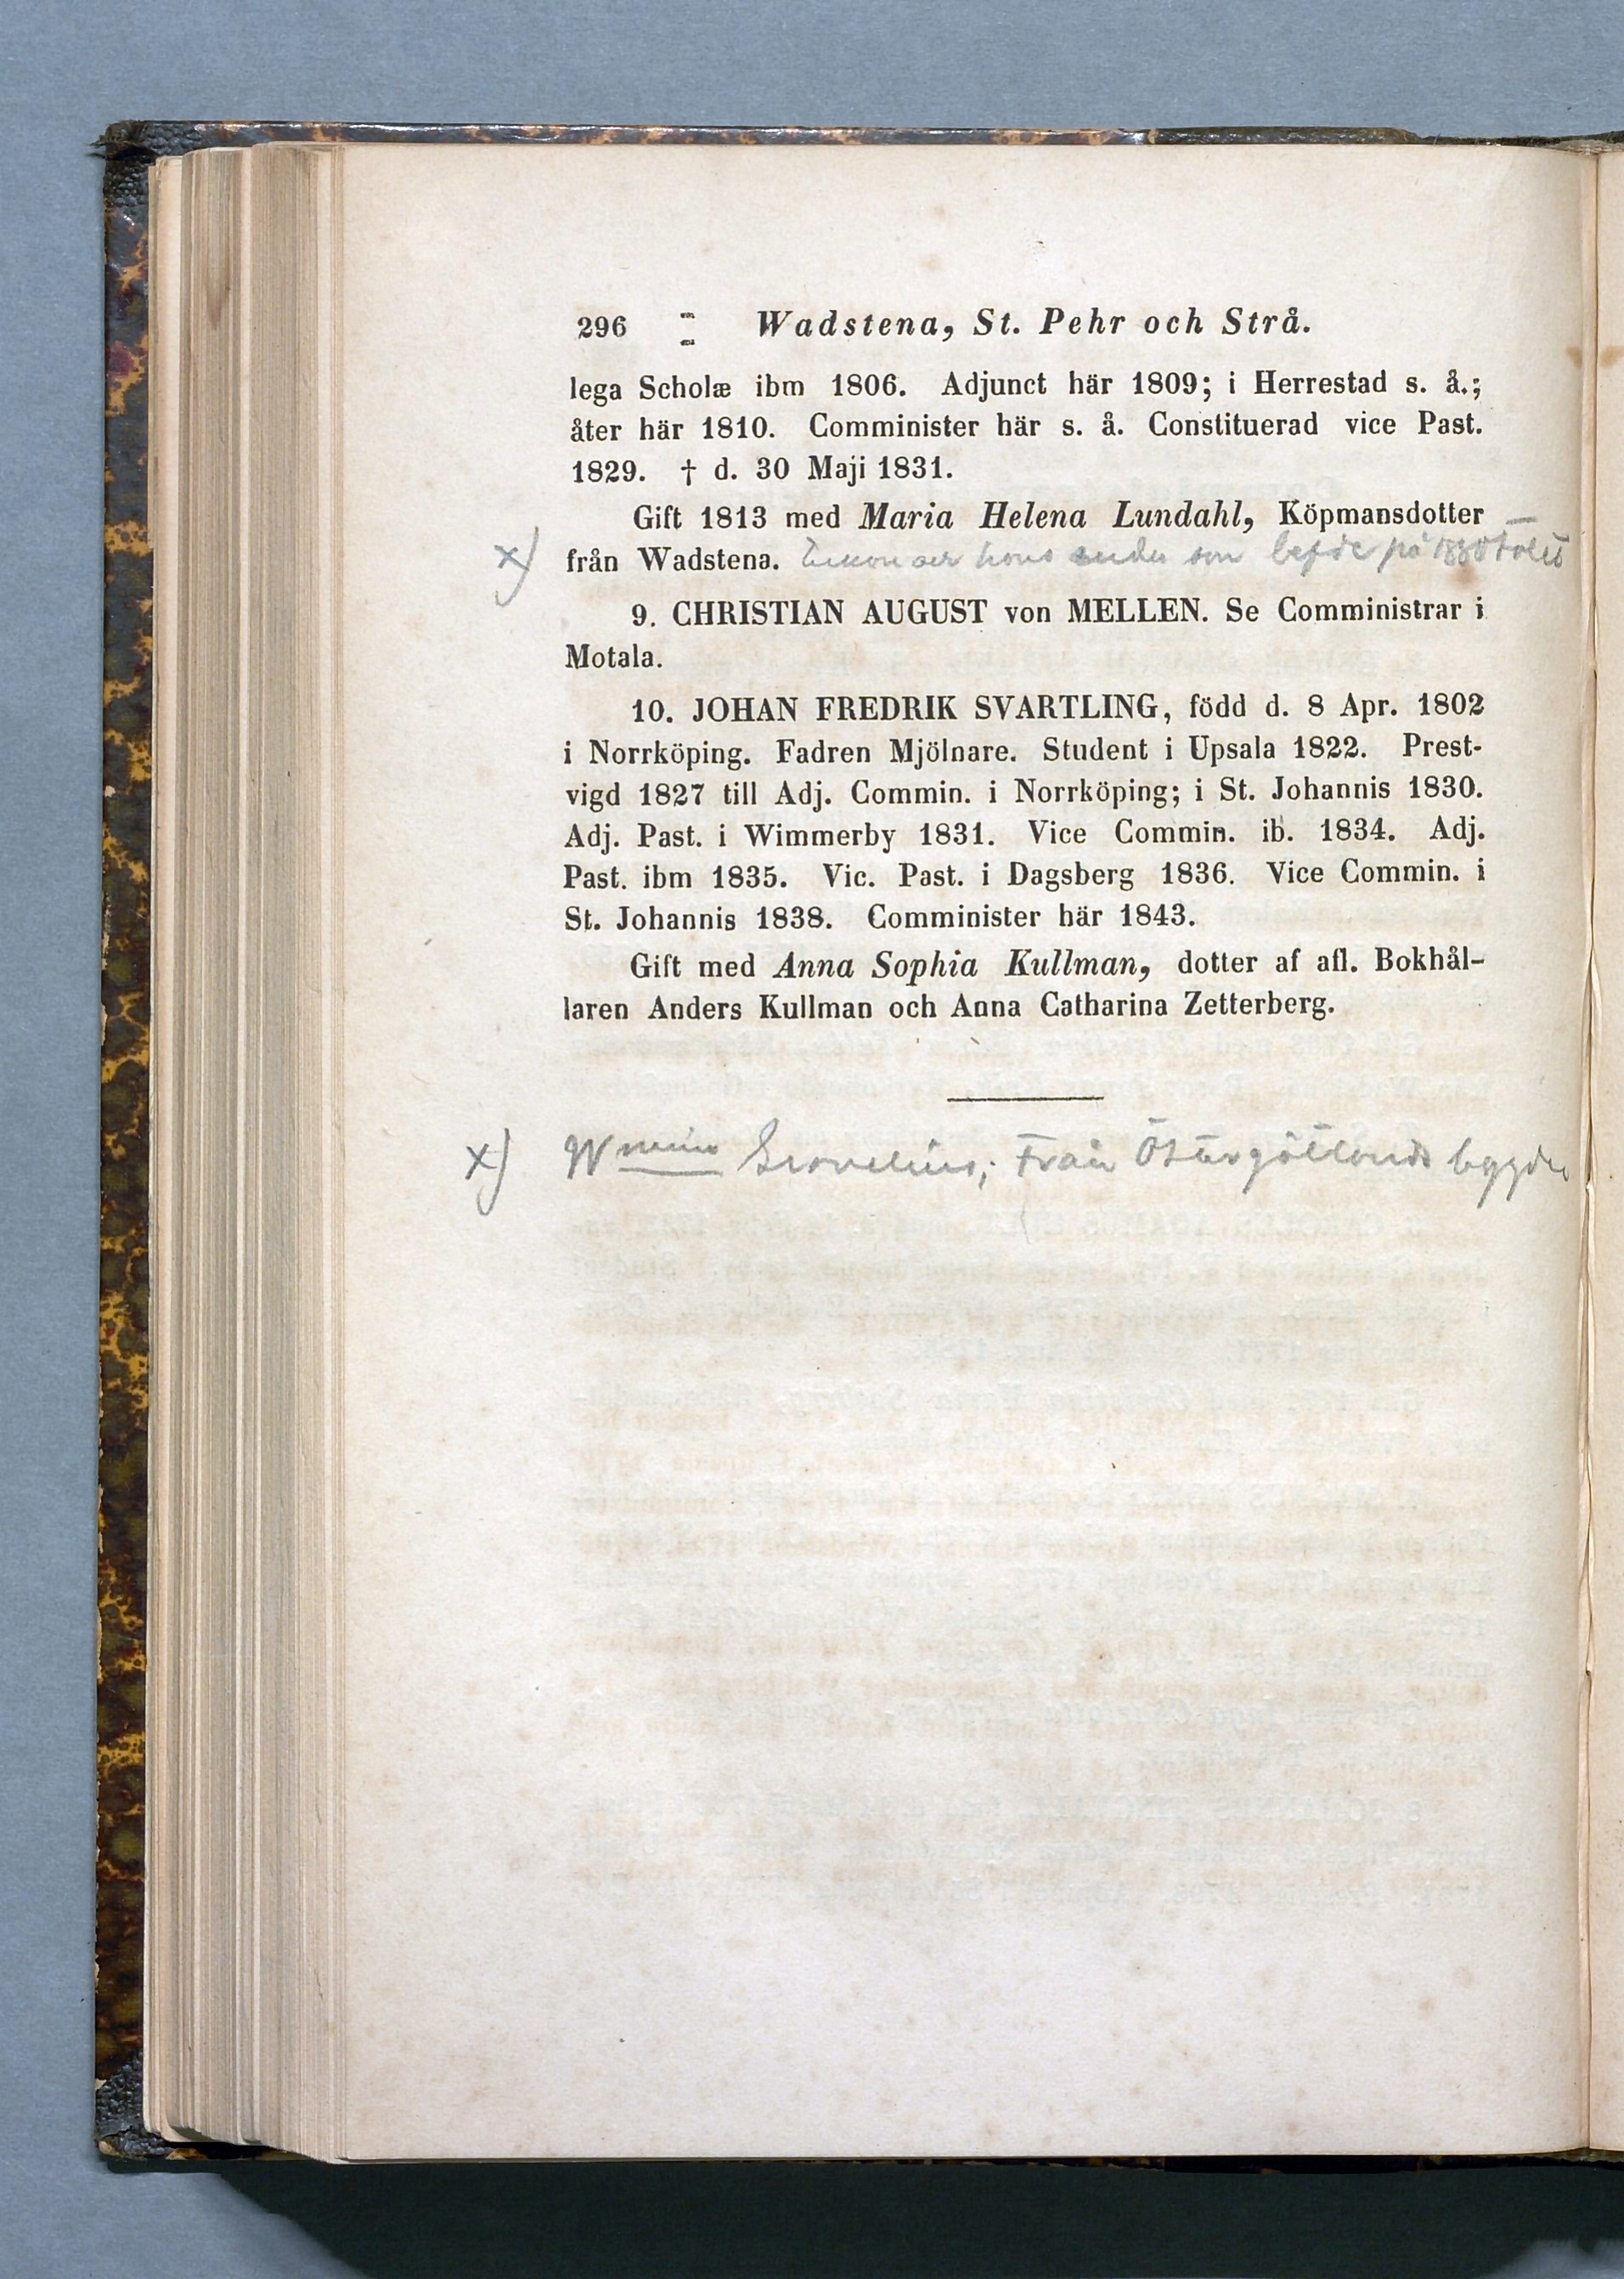 296 Wadstena, St. Pehr och Strå.
lega Scholæ ibm 1806. Adjunct här 1809; i Herrestad s. å.;
åter här 1810. Comminister här s. å. Constituerad vice Past.
1829. † d. 30 Maji 1831.
Gift 1813 med Maria Helena Lundahl, Köpmansdotter
x) från Wadstena. hans som lefde på 1880 talet
9. CHRISTIAN AUGUST von MELLEN. Se Comministrar i
Motala.
10. JOHAN FREDRIK SVARTLING, född d. 8 Apr. 1802
i Norrköping. Fadren Mjölnare. Student i Upsala 1822. Prest-
vigd 1827 till Adj. Commin. i Norrköping; i St. Johannis 1830.
Adj. Past. i Wimmerby 1831. Vice Commin. ib. 1834. Adj.
Past. ibm 1835. Vic. Past. i Dagsberg 1836. Vice Commin. i
St. Johannis 1838. Comminister här 1843.
Gift med Anna Sophia Kullman, dotter af afl. Bokhål-
laren Anders Kullman och Anna Catharina Zetterberg.
x) Från Östergötlands bygder